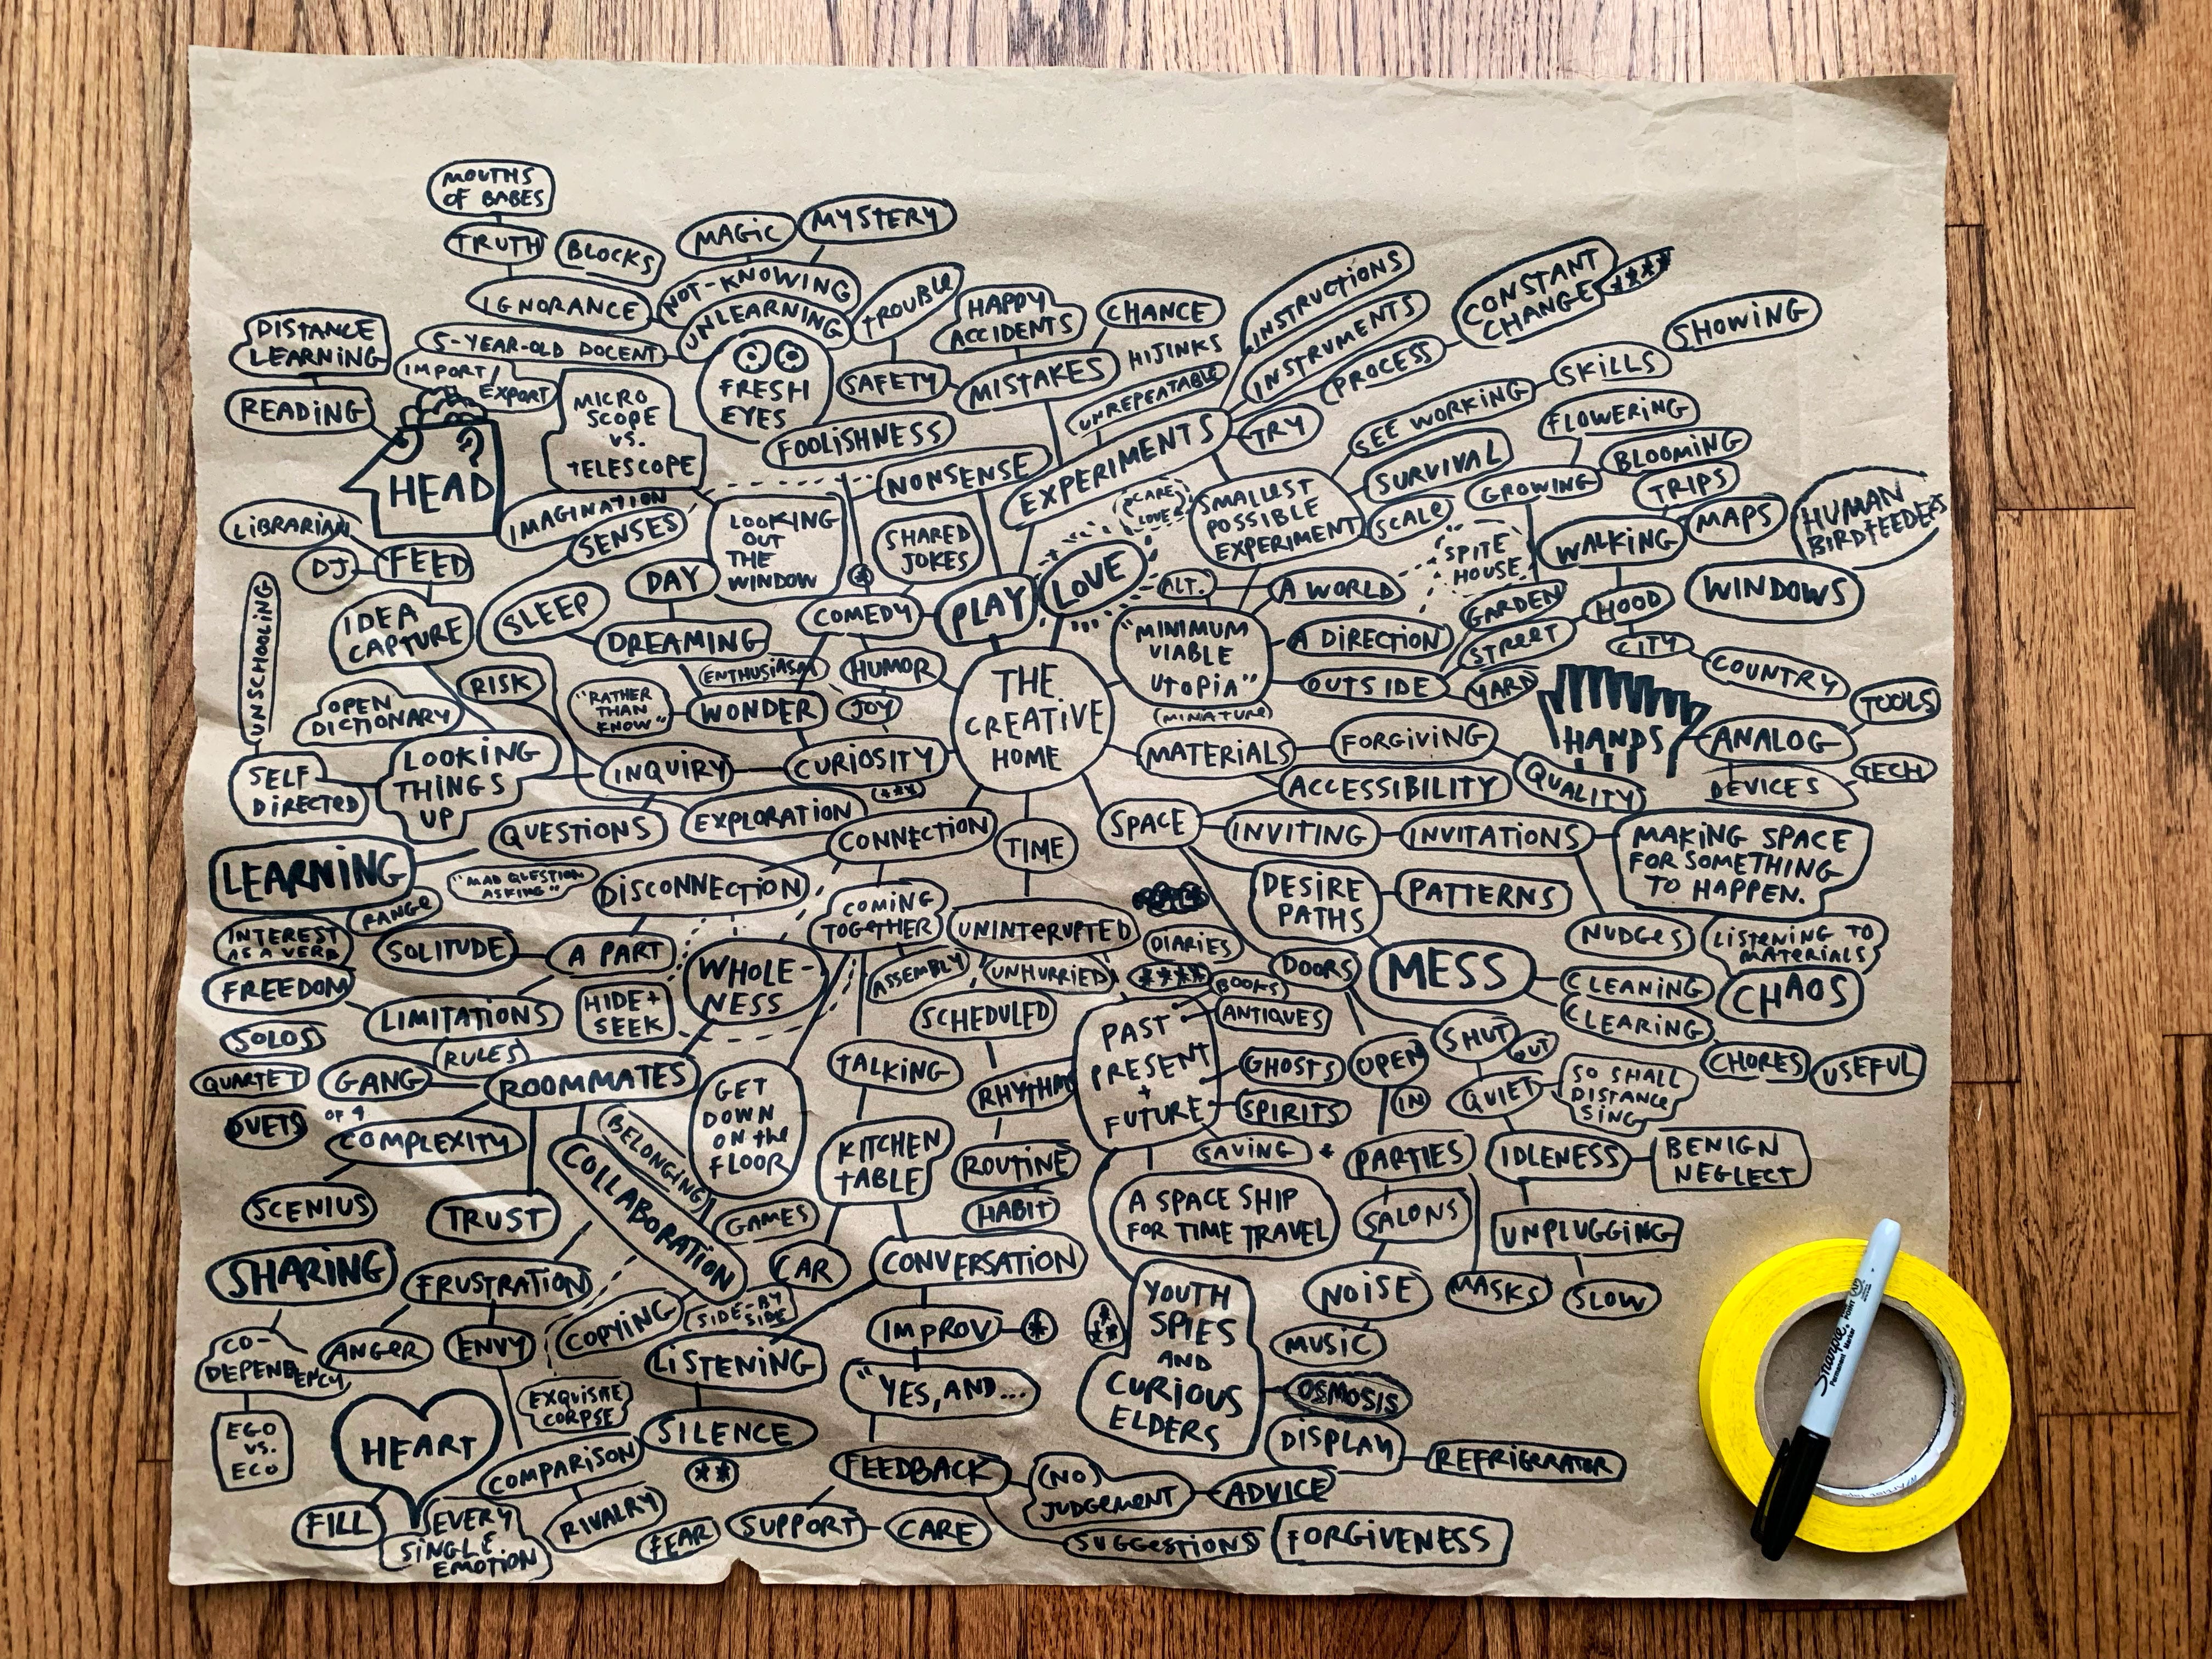 MOUTHS
OF BABES
TRUTH
BLOCKS
MAGIC
MYSTERY
IGNORANCE
NOT-KNOWING
UNLEARNING
TROUBLE
HAPPY
ACCIDENTS
CHANCE
HIJINKS
INSTRUCTIONS
INSTRUMENTS
CONSTANT
CHANGE
****
SHOWING
DISTANCE
LEARNING
5-YEAR-OLD DOCENT
IMPORT/
EXPORT
READING
?
HEAD
MICRO
SCOPE
VS.
TELESCOPE
FRESH
EYES
SAFETY
MISTAKES
UNREPEATABLE
PROCESS
SKILLS
SEE WORKING
FOOLISHNESS
NONSENSE
EXPERIMENTS
TRY
SURVIVAL
FLOWERING
BLOOMING
GROWING
TRIPS
MAPS
HUMAN
BIRDFEEDERS
IMAGINATION
SENSES
LOOKING
OUT
THE
WINDOW
SHARED
JOKES
*
CARE
LOVE
SMALLEST
POSSIBLE
EXPERIMENT
SCALE
SPITE
HOUSE
WALKING
WINDOWS
LIBRARIAN
DJ
FEED
IDEA
CAPTURE
UNSCHOOLING
SLEEP
DAY
DREAMING
COMEDY
PLAY
LOVE
ALT.
A WORLD
GARDEN
HOOD
"MINIMUM
VIABLE
UTOPIA"
(MINATURE)
A DIRECTION
STREET
CITY
COUNTRY
OUTSIDE
YARD
RISK
"RATHER
THAN
KNOW"
ENTHUSIASM
WONDER
HUMOR
JOY
THE
CREATIVE
HOME
OPEN
DICTIONARY
LOOKING
THINGS
UP
SELF
DIRECTED
INQUIRY
CURIOSITY
(***)
MATERIALS
FORGIVING
HANDS
ANALOG
TOOLS
ACCESSIBILITY
QUALITY
DEVICES
TECH
QUESTIONS
EXPLORATION
CONNECTION
TIME
SPACE
INVITING
INVITATIONS
MAKING SPACE
FOR SOMETHING
TO HAPPEN.
LEARNING
"MAD QUESTION
ASKING"
DISCONNECTION
COMING
TOGETHER
UNINTERUPTED
DESIRE
PATHS
PATTERNS
RANGE
INTEREST
AS A VERB
SOLITUDE
A PART
WHOLE-
NESS
ASSEMBLY
UNHURRIED
DIARIES
****
BOOKS
DOORS
MESS
NUDGES
LISTENING TO
MATERIALS
CLEANING
CHAOS
CLEARING
FREEDOM
LIMITATIONS
HIDE +
SEEK
SCHEDULED
PAST
PRESENT
+
FUTURE
ANTIQUES
GHOSTS
SPIRITS
SAVING
*
OPEN
IN
SHUT
OUT
CHORES
USEFUL
SOLOS
RULES
QUARTET
GANG
OF 4
DUETS
ROOMMATES
GET
DOWN
ON the
FLOOR
TALKING
RHYTHM
QUIET
SO SHALL
DISTANCE
SING
COMPLEXITY
BELONGING
COLLABORATION
KITCHEN
TABLE
ROUTINE
HABIT
PARTIES
IDLENESS
BENIGN
NEGLECT
SCENIUS
TRUST
GAMES
CAR
A SPACE SHIP
FOR TIME TRAVEL
SALONS
UNPLUGGING
SHARING
FRUSTRATION
CONVERSATION
NOISE
MASKS
SLOW
CO-
DEPENDENCY
ANGER
ENVY
COPYING
SIDE-BY
SIDE
LISTENING
IMPROV
*
***
YOUTH
SPIES
AND
CURIOUS
ELDERS
MUSIC
OSMOSIS
EGO
VS.
ECO
HEART
EXQUISITE
CORPSE
"YES, AND...
SILENCE
**
DISPLAY
REFRIGERATOR
COMPARISON
FEEDBACK
(NO)
JUDGEMENT
ADVICE
FILL
EVERY
SINGLE
EMOTION
RIVALRY
FEAR
SUPPORT
CARE
SUGGESTIONS
FORGIVENESS
Sharpie
Permanent Marker